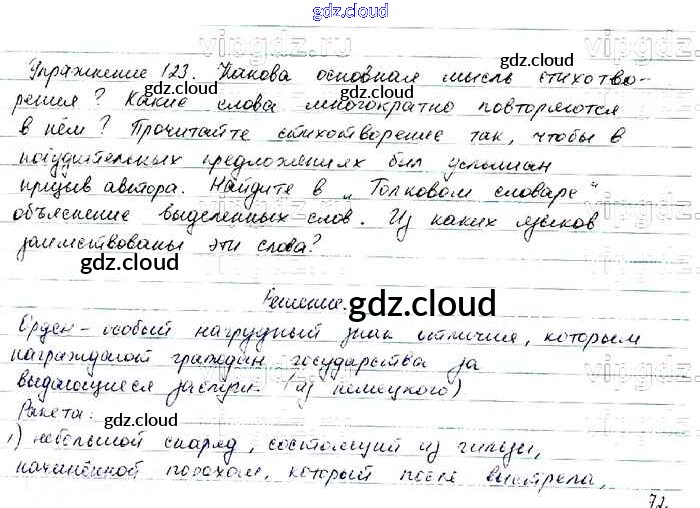 gdz.cloud
vipgdz.ru
Упражнение 123. Какова основная мысль стихотво-
рения? Какие слова многократно повторяются
в нём? Прочитайте стихотворение так, чтобы в
побудительных предложениях был услышан
призыв автора. Найдите в „Толковом словаре“
объяснение выделенных слов. Из каких языков
заимствованы эти слова?
gdz.cloud
gdz.cloud
gdz.cloud
gdz.cloud
Решение. gdz.cloud
Орден – особый нагрудный знак отличия, которым
награждают граждан государства за
выдающиеся заслуги. (из немецкого)
gdz.cloud
gdz.cloud
Ракета:
gdz.cloud
1) небольшой снаряд, состоящий из гильзы,
начинённой порохом, который после выстрела,
gdz.cloud
gdz.cloud
72.